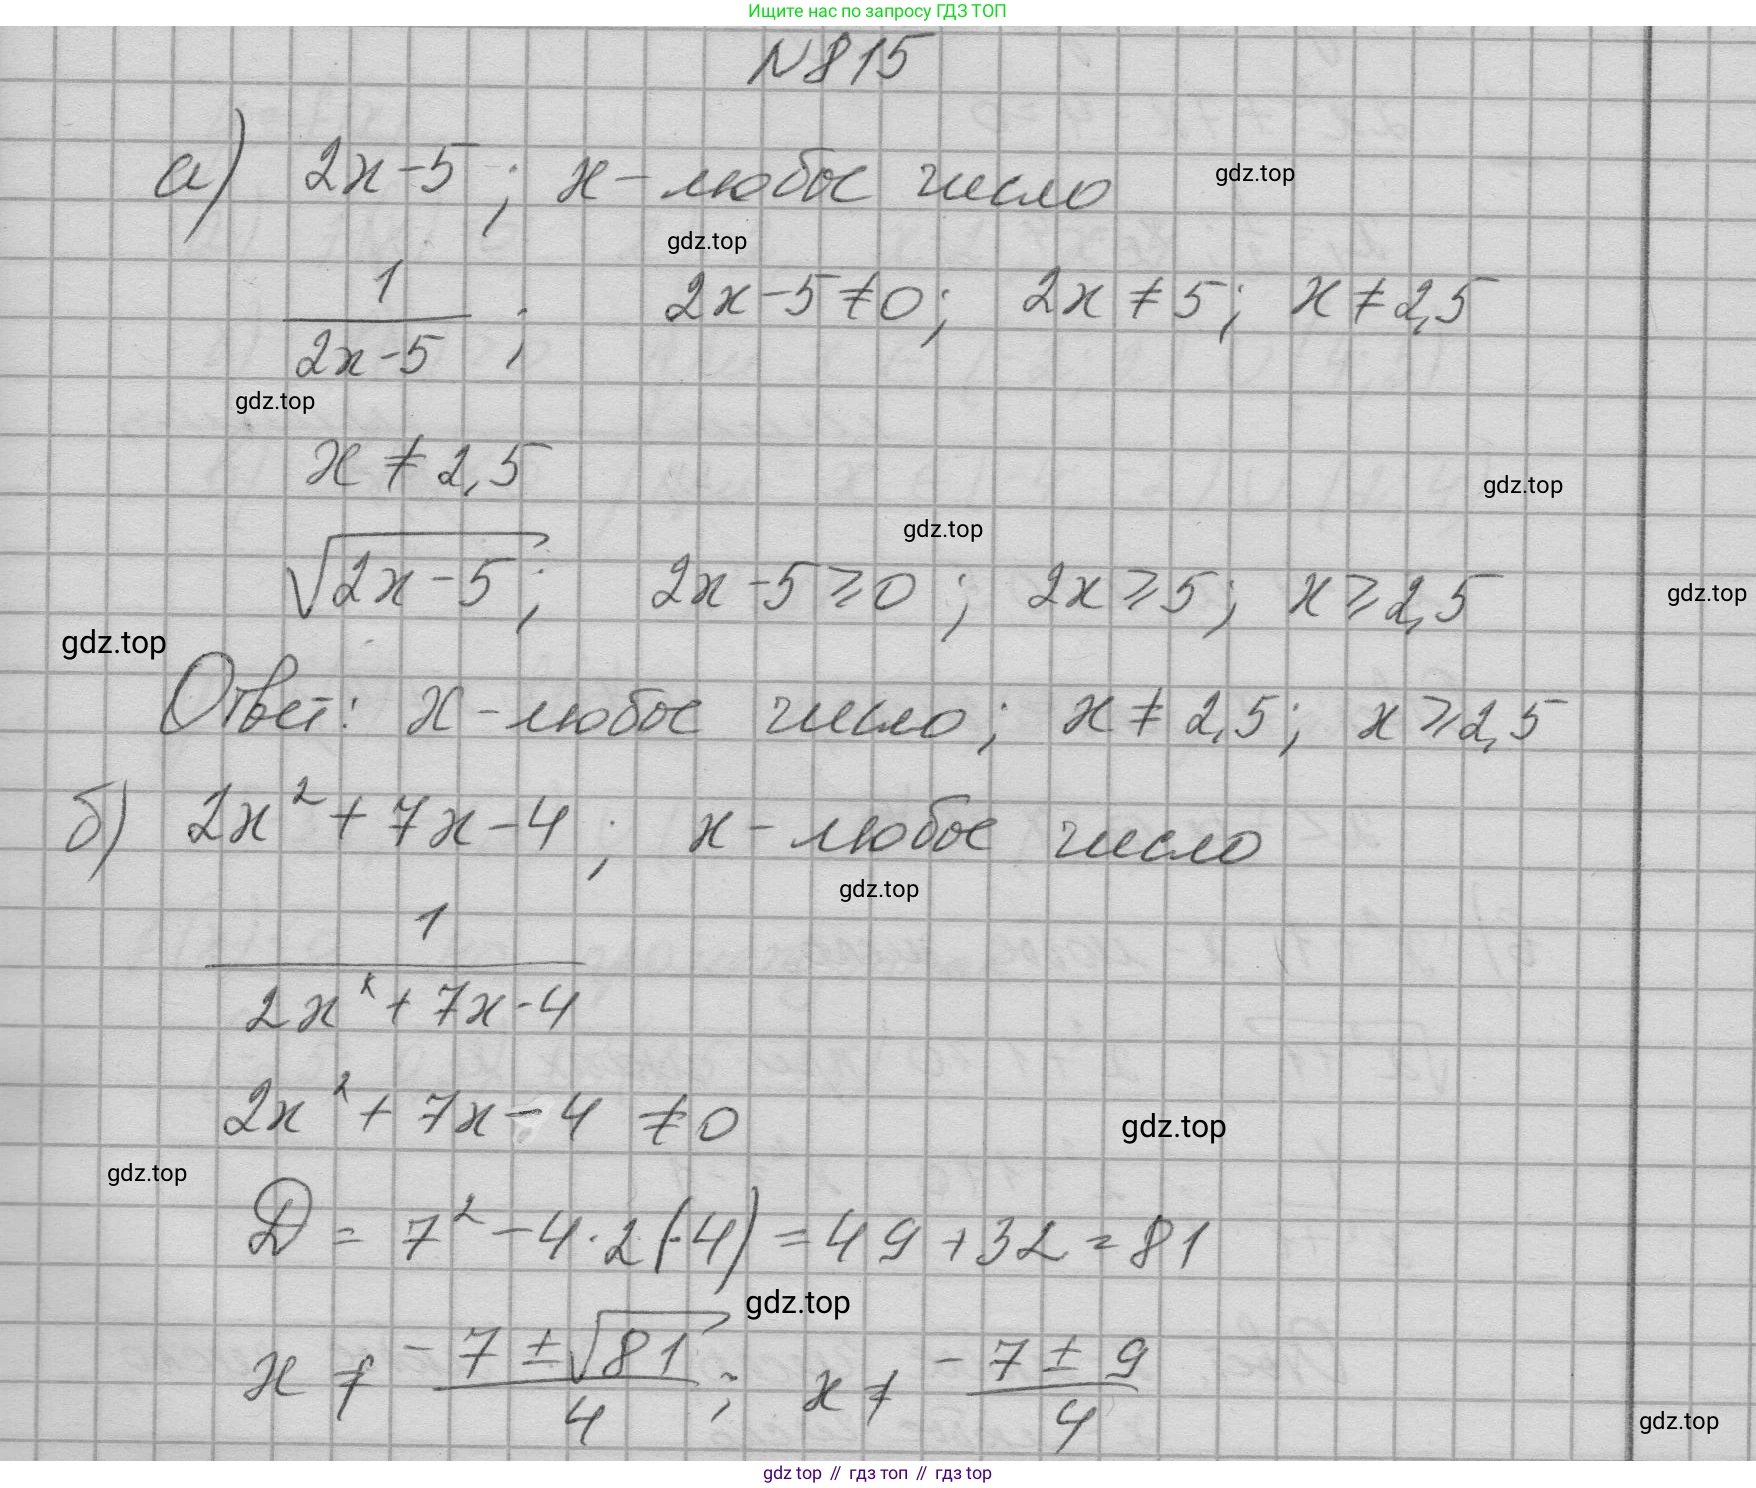 Ищите нас по запросу ГДЗ ТОП
N815
а) 2x-5; x - любое число
gdz.top
gdz.top
1/(2x-5); 2x-5≠0; 2x≠5; x≠2,5
gdz.top
x≠2,5
gdz.top
gdz.top
√(2x-5); 2x-5≥0; 2x≥5; x≥2,5
gdz.top
gdz.top
Ответ: x - любое число; x≠2,5; x≥2,5
б) 2x²+7x-4; x - любое число
gdz.top
1/(2x²+7x-4)
2x²+7x-4≠0
gdz.top
gdz.top
D = 7²-4·2(-4)=49+32=81
gdz.top
x≠(-7±√81)/4; x≠(-7±9)/4
gdz.top
gdz top // гдз топ // гдз top